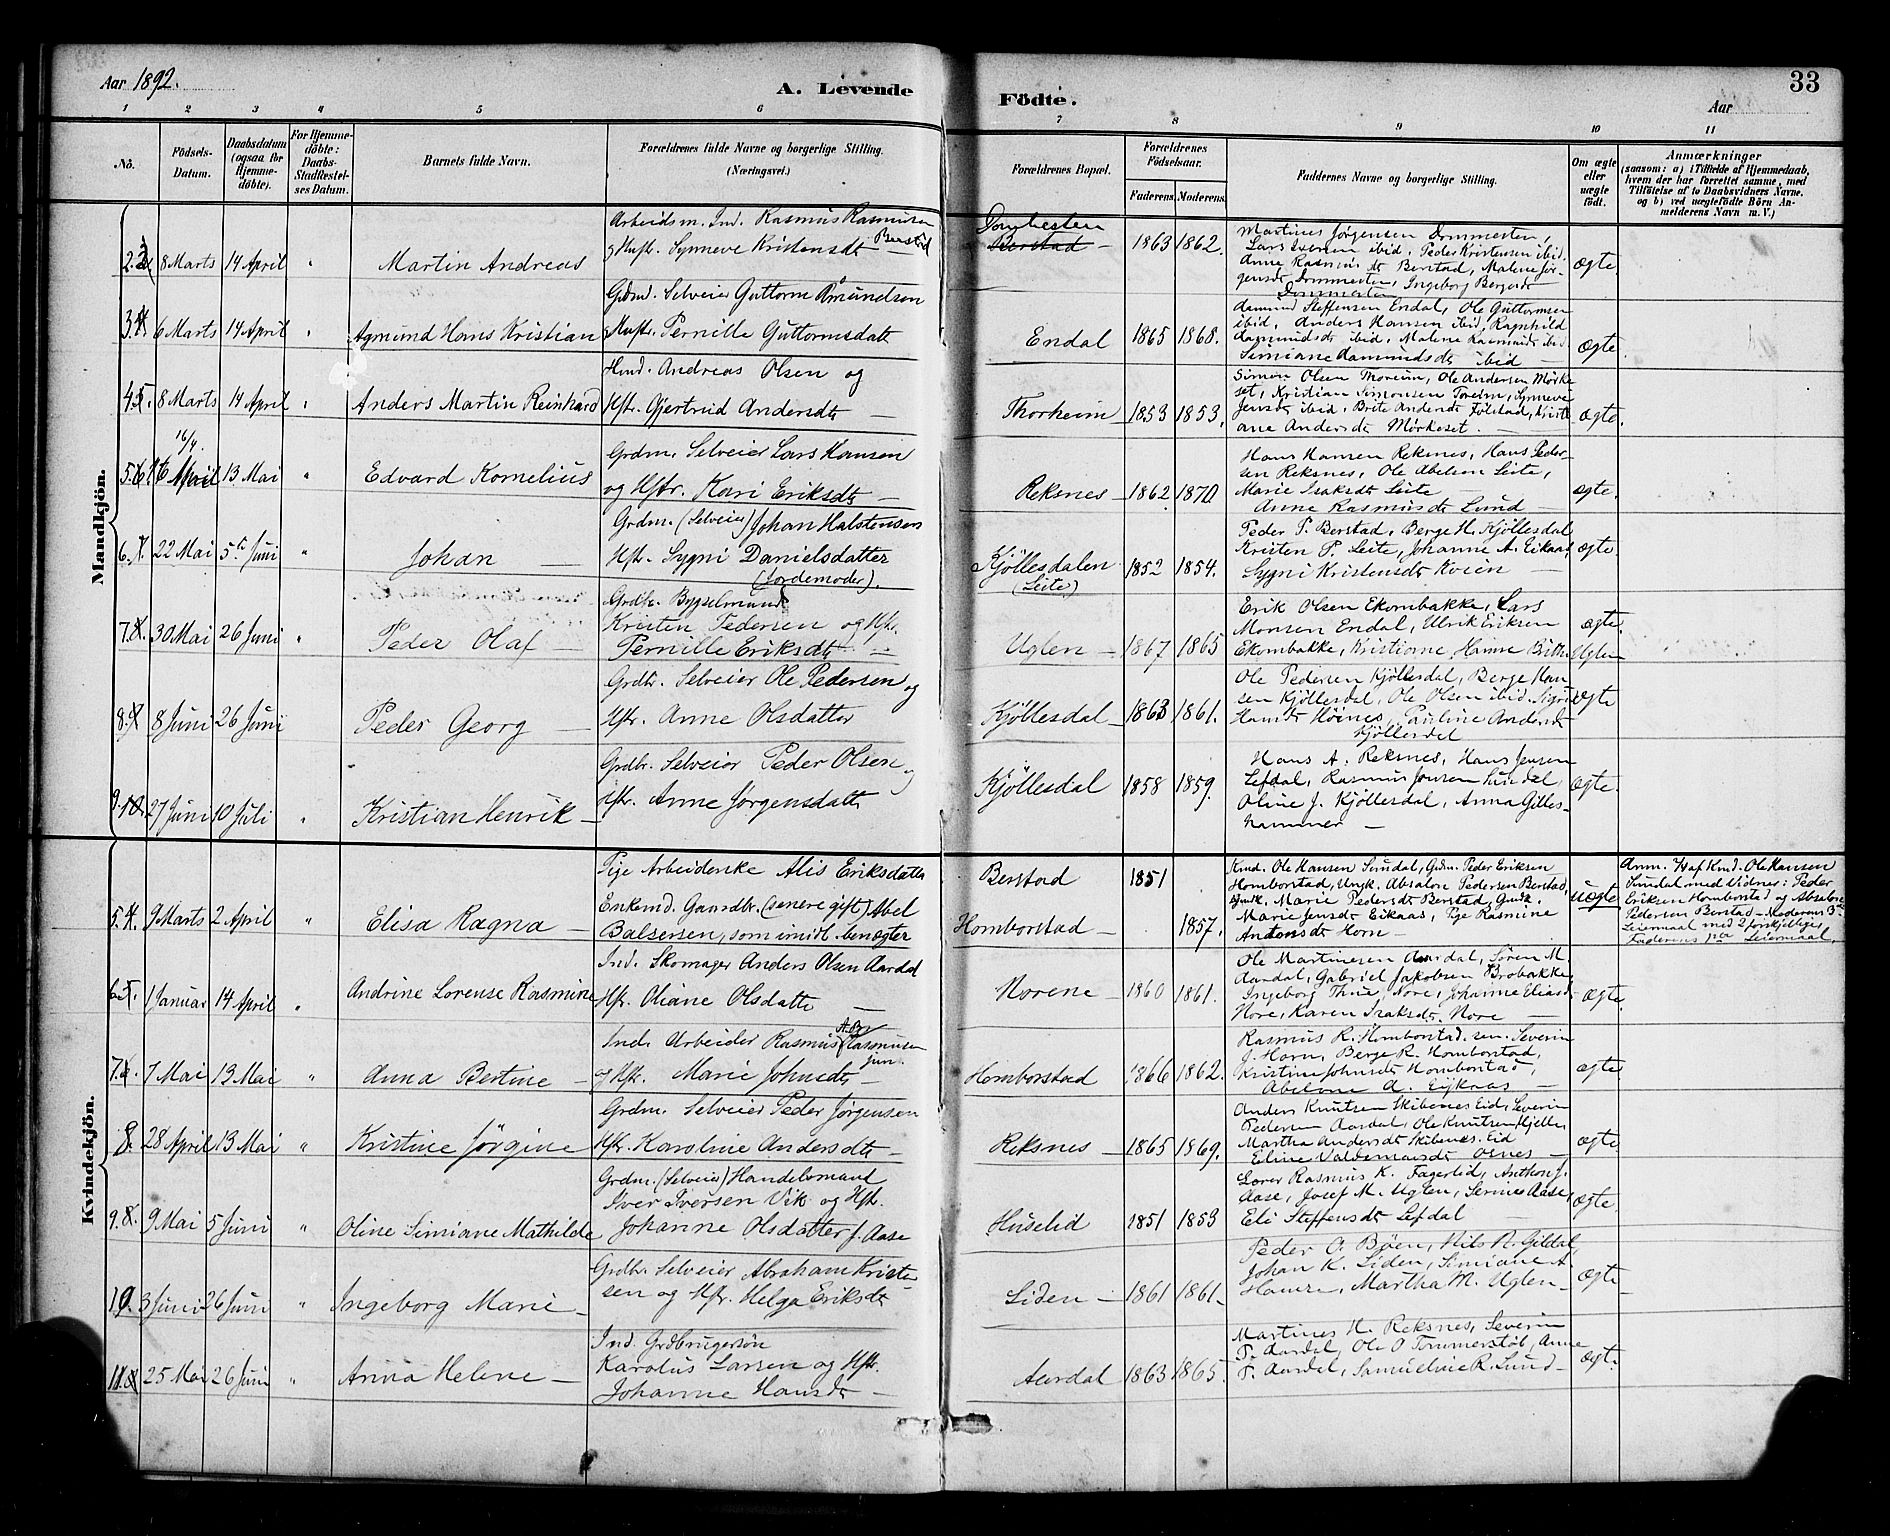 Aar 1892.
A. Levende
Födte.
Aar
33
1 2 3 4 5 6 7 8 9 10 11
No.
Födsels-
Datum.
Daabsdatum
(ogsaa for
Hjemme-
döbte).
For Hjemme-
döbte:
Daabs-
Stadfæstel-
ses Datum.
Barnets fulde Navn.
Forældrenes fulde Navne og borgerlige Stilling.
(Næringsvei.)
Forældrenes Bopæl.
Forældrenes
Födselsaar.
Faderens. Moderens.
Faddernes Navne og borgerlige Stilling.
Om ægte
eller
uægte
født.
Anmærkninger
(saasom: a) i Tilfælde af Hjemmedaab,
hvem der har forrettet samme, med
Tilföielse af to Daabsvidners Navne.
og b) ved uægtefödte Börn An-
melderens Navn m. V.)
Mandkjön.
Arbeidsm. Ind. Rasmus Rasmusen
Berstad
8 Marts 14 April " Martin Andreas
og Hustr. Synneve Kristensdt —
Berstad — 1863 1862.
Martines Jörgensen Dommesten,
Lars Iversen ibid, Peder Kristensen ibid.
Anne Rasmus dt Berstad, Malene Jör-
gensdt Dommesten, Ingeborg Bergesdt
Dommesten
ægte.
Grdm. Selveier Guttorm Amundsen
6 Marts 14 April " Agmund Hans Kristian
og Hustr. Pernille Guttormsdatt
Endal 1865 1868.
Aamund Steffensen Endal, Ole Guttormsen
ibid, Anders Hansen ibid, Ragnhild
Aamundsdt ibid, Malene Rasmusdt ibid
Simiane Aamundsdt ibid —
ægte.
Hmd. Andreas Olsen og
8 Marts 14 April " Anders Martin Reinhard
Hstr. Gjertrud Andersdt —
Thorheim 1853 1853.
Simon Olsen Thoreim, Ole Andersen Mørke
set, Kristian Simonsen Toreim, Synneve
Jensdt ibid, Brite Andersdt Følstad, Kristi
ane Andersdt Mørkeset. —
ægte.
16/4
16 April 13 Mai " Edvard Kornelius
Grdm. Selveier Lars Hansen
og Hstr. Kari Eriksdt —
Reksnes — 1862 1870
Hans Hansen Reksnes, Hans Peder-
sen Reksnes, Ole Abelsen Leite,
Marie Isaksdt Leite —
Anne Rasmusdt Lund —
ægte.
Grdm. (Selveier) Johan Halstensen
22 Mai 5te Juni " Johan —
Hstr. Sygni Danielsdatter
(Jordemoder).
Kjöllesdalen
(Leite)
1852 1854.
Peder P. Berstad, Berge H. Kjöllesdal
Kristen P. Leite, Johanne A. Eikaas
Sygni Kristensdt Kvien —
ægte.
Grdbr. Bygselmand
30 Mai 26 Juni " Peder Olaf —
Kristen Pedersen og Hstr.
Pernille Eriksdt —
Uglen — 1867 1865
Erik Olsen Ekornbakke, Lars
Monsen Endal, Ulrik Eriksen
Ekornbakke, Kristianne Hamre Brith.
Uglen
ægte.
Grdbr. Selveier Ole Pedersen og
8 Juni 26 Juni Peder Georg —
Hstr. Anne Olsdatter
Kjöllesdal — 1863 1861.
Ole Pedersen Kjöllesdal, Berge Han
sen Kjöllesdal, Ole Olsen ibid. Sigri
Hansdt Höines, Pauline Andersdt
Kjöllesdal
ægte
Grdbr. Selveier Peder Olsen og
27 Juni 10 Juli " Kristian Henrik —
Hstr. Anne Jørgensdatt
Kjöllesdal 1858 1859.
Hans A. Reksnes, Hans Jensen
Lefdal, Rasmus Jonsen Lundal
Oline J. Kjöllesdal, Anna Gilles-
hammer —
ægte.
Kvindekjön.
Pige Arbeiderske Alis Eriksdatter
9 Marts 2 April " Elisa Ragna —
Enkemd. Gaardbr. (senere gift) Abel
Balsersen, som imidl. benægter
Berstad 1851
Homborstad — 1857.
Kmd. Ole Hansen Sundal, Gdm. Peder Eriksen
Homborstad, Ungk. Absalon Pedersen Berstad,
Marie Pedersdt Berstad,
Marie Jensdt Eikaas, Pige Rasmine
Antonsdt Horn —
uægte
Anm. af Kmd. Ole Hansen
Sundal med Vidner: Peder
Eriksen Homborstad og Absalon
Pedersen Berstad — Moderens 3die
Leiermaal med 2 forskjellige
Faderens 1ste Leiermaal.
Ind. Skomager Anders Olsen Aardal
1 Januar 14 April " Andrine Lorense Rasmine
Hstr. Oliane Olsdatte —
Norene — 1860 1861.
Ole Martinesen Aardal, Søren M.
Aardal, Gabriel Jakobsen Brobakke,
Ingeborg Thue, Nore, Johanne Eliasdt
Nore, Karen Isaksdt. Nore —
ægte
Ind. Arbeider Rasmus Rasmusen
jun.
7 Mai 13 Mai " Anna Bertine —
og Hstr. Marie Johnsdt —
Homborstad 1866 1862.
Rasmus R. Homborstad. sen. Severin
J. Horn, Berge R. Homborstad,
Kristine Johnsdt Homborstad,
Abelone A. Eykaas —
ægte.
Grdm. Selveier Peder Jörgensen
8. 28 April 13 Mai " Kristine Jørgine
Hstr. Karoline Andersdt —
Reksnes — 1865 1869.
Anders Knutsen Skibenes Eid, Severin
Pedersen Aardal, Ole Knutsen Hjelle,
Martha Andersdt Skibenes. Eid
Eline Valdemarsdt Osnes —
ægte.
Grdm. (Selveier) Handelsmand
9. 9 Mai 5 Juni " Oline Simiane Mathilde
Iver Iversen Vik og Hst.
Johanne Olsdatter f. Aase
Huselid 1851 1853
Lærer Rasmus K. Fagerlid, Anthon J.
Aase, Josef M. Uglen, Serine Aase,
Eli Steffensdt Lefdal —
ægte.
Grdbr. Selveier Abraham Kriste
10. 3 Juni 26 Juni " Ingeborg Marie —
sen og Hstr. Helga Eriksdt
Liden — 1861 1861.
Peder O. Böen, Nils R. Gildal,
Johan K. Liden, Simiane A.
Hamre, Martha M. Uglen —
ægte.
Ind. Grdbrugersön
11. 25 Mai 26 Juni " Anna Helene —
Karolus Larsen og Hstr.
Johanne Hansdt —
Aardal 1863 1865.
Martines H. Reksnes, Severin
P. Aardal, Ole O Tommerstöl, Anne
P. Aardal, Samueline R. Lund —
ægte.